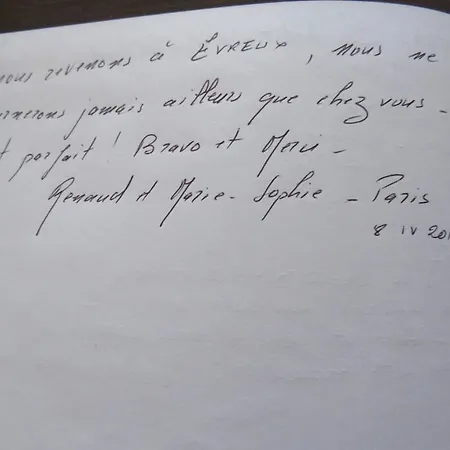 nous revenons à EVREUX, nous ne
rnerons jamais ailleurs que chez vous -
t parfait ! Bravo et Merci -
Renaud et Marie-Sophie - Paris
8 IV 201